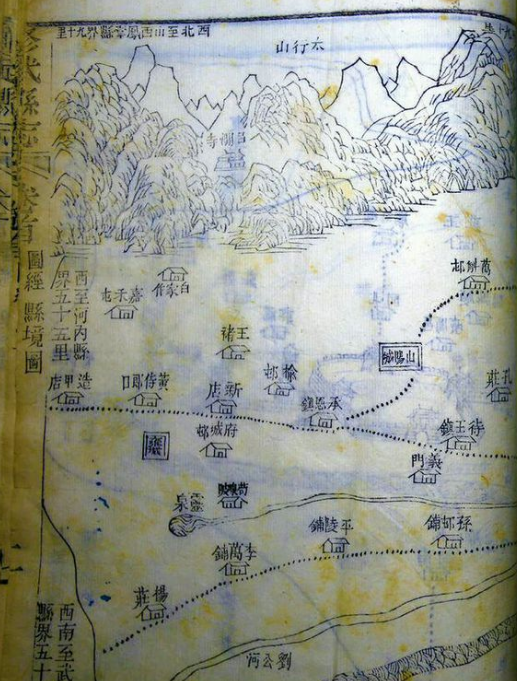 修武縣志
卷首
圖經 縣境圖
西北至山西鳳臺縣界九十里
太行山
寺
萬斛邨
白家作
嘉禾屯
西至河内縣界五十五里
山陽城
王褚
榆邨
孔莊
造甲店
黃侍郎口
新店
承恩鎮
待王鎮
府城邨
義門
靈泉
孫邨鋪
平陵鋪
李萬鋪
楊莊
西南至武
縣界五十
劉公河